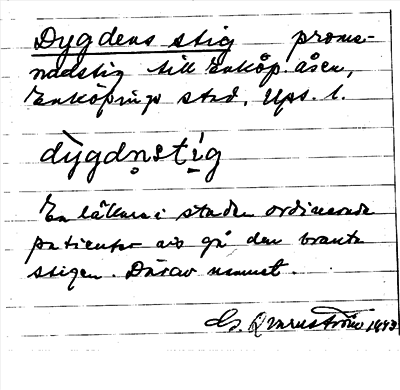 Dygdens stig prome-
nadstig till Enköp. åsen,
Enköpings stad, Ups. l.
dỳgdn̥stị́g
En läkare i staden ordinerade
patienter att gå den branta
stigen. Därav namnet.